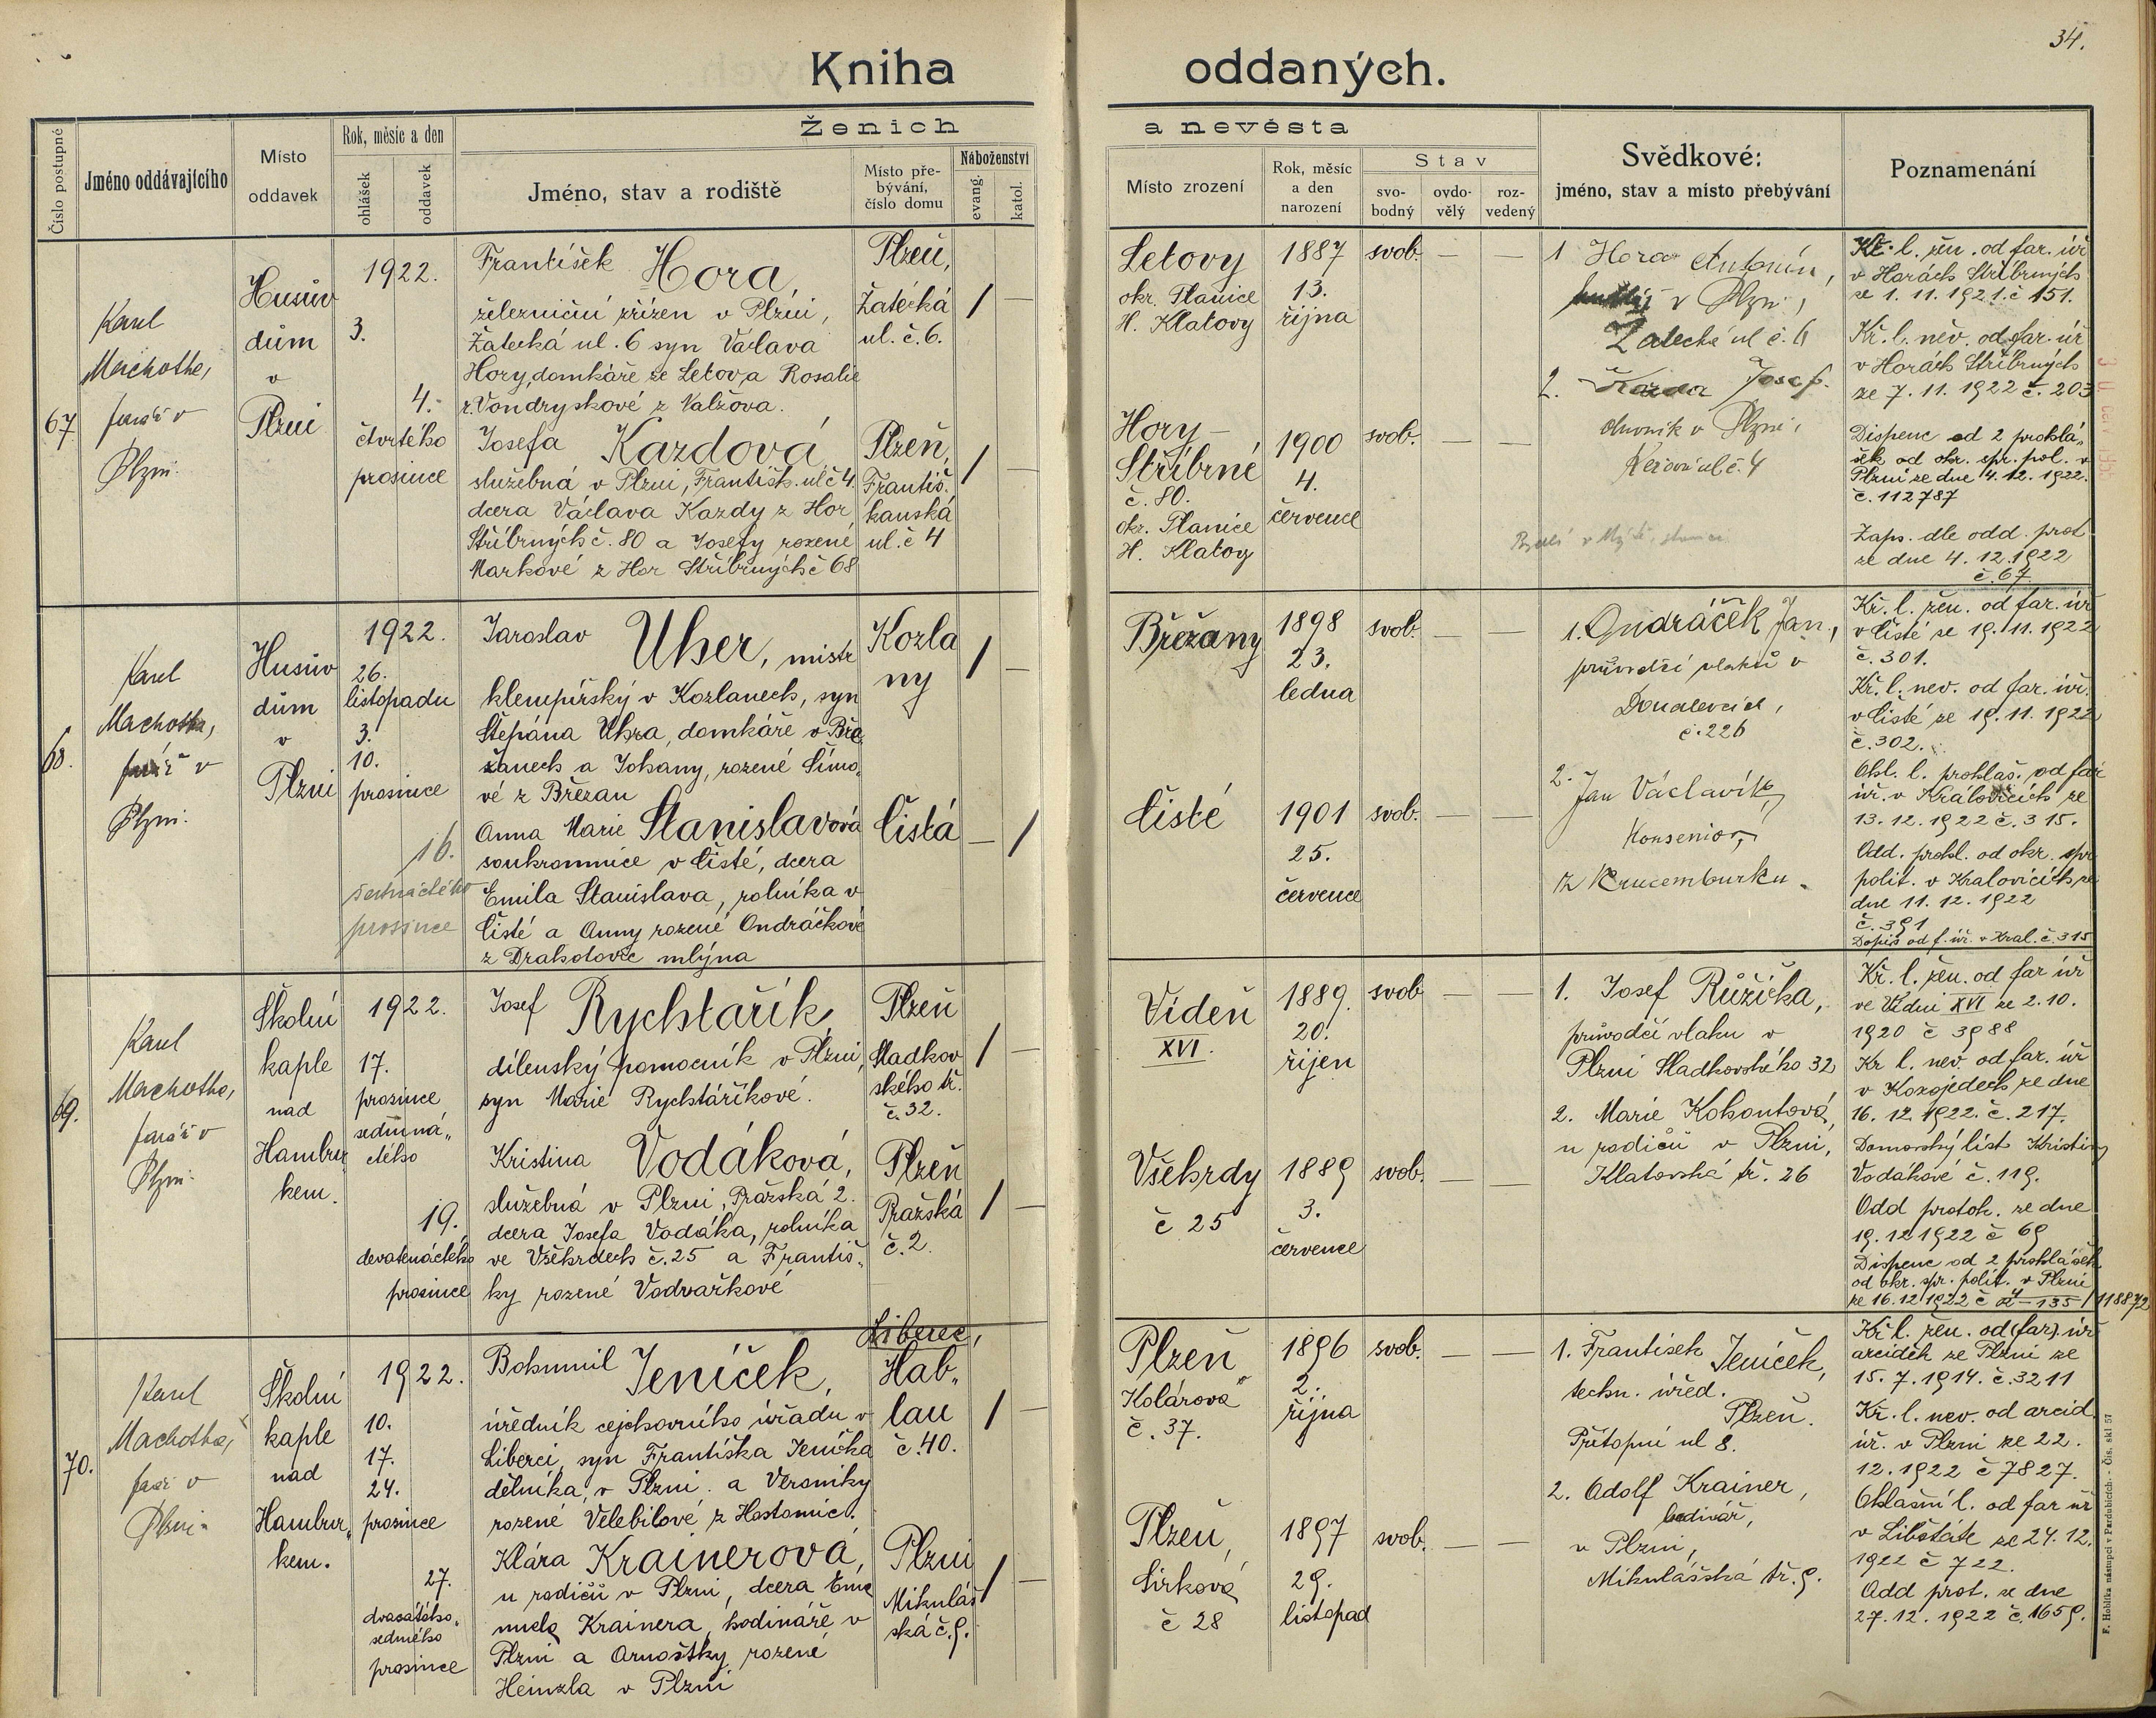 34.
Kniha oddaných.
Číslo postupné
Jméno oddávajícího
Místo
oddavek
Rok, měsíc a den
ohlášek
oddavek
Ženich
a nevěsta
Jméno, stav a rodiště
Místo pře-
bývání,
číslo domu
Náboženství
evang.
katol.
Místo zrození
Rok, měsíc
a den
narození
Stav
svo-
bodný
ovdo-
vělý
roz-
vedený
Svědkové:
jméno, stav a místo přebývání
Poznamenání
67
Karel
Machotka,
farář v
Plzni.
Husův
dům
v
Plzni
1922.
3.
4.
čtvrtého
prosince
František Hora,
železniční zřízen v Plzni,
Žatecká ul. 6 syn Václava
Hory, domkáře ze Letov, a Rosalie
r. Vondryskové z Valžova.
Plzeň,
Žatecká
ul. č. 6.
/ —
Josefa Kazdová
služebná v Plzni, Františk. ul č 4
dcera Václava Kazdy z Hor
Stříbrných č. 80 a Josefy rozené
Markové z Hor Stříbrných č 68
Plzeň,
Františ-
kanská
ul. č 4
/ —
Letovy
okr. Planice
H. Klatovy
1887
13.
října
svob. — —
Hory-
Stříbrné
č. 80.
okr. Planice
H. Klatovy
1900
4.
července
svob. — —
1 Hora Antonín,
v Plzni,
Žatecká ul č. 6
2. Kazda Josef.
obuvník v Plzni,
ul č. 4
Kř. l. žen. od far. úř
v Horách Stříbrných
ze 1. 11. 1921. č 151.
Kř. l. nev. od far. úř
v Horách Stříbrných
ze 7. 11. 1922 č. 203
Dispenc od 2 prohlá-
šek od okr. spr. pol. v
Plzni ze dne 4. 12. 1922.
č. 112787
Zaps. dle odd. prot
ze dne 4. 12. 1922
č. 67
68.
Karel
Machotka,
farář v
Plzni.
Husův
dům
v
Plzni
1922.
26.
listopadu
3.
10.
prosince
16.
šestnáctého
prosince
Jaroslav Uher, mistr
klempířský v Kozlanech, syn
Štěpána Uhra, domkáře v Bře-
žanech a Johany, rozené Šímo-
vé z Břežan
Kozla
ny
/ —
Anna Marie Stanislavová
soukromnice v Čisté, dcera
Emila Stanislava, rolníka v
Čisté a Anny rozené Ondráčkové
z Drahotovic mlýna
Čistá
— /
Břežany
1898
23.
ledna
svob. — —
Čisté
1901
25.
července
svob. — —
1. Ondráček Jan,
průvodčí vlaků v
č. 226
2. Jan Václavík,
Konsenior,
z Krucemburku.
Kř. l. žen. od far. úř
v Čisté ze 19. 11. 1922
č. 301.
Kř. l. nev. od far. úř.
v Čisté ze 19. 11. 1922
č. 302.
Ohl. l. prohláš. od far
úř. v Královicích ze
13. 12. 1922 č. 315.
Odd. prohl. od okr. spr
polit. v Kralovicích ze
dne 11. 12. 1922
č. 391
Dopis od f. úř. v Kral. č. 315
69.
Karel
Machotka,
farář v
Plzni.
Školní
kaple
nad
Hambur
kem.
1922.
17.
prosince
sedmná-
ctého
19.
devatenáctého
prosince
Josef Rychtařík,
dílenský pomocník v Plzni,
syn Marie Rychtaříkové.
Plzeň
Sladkov
ského tř.
č. 32.
/ —
Kristina Vodáková,
služebná v Plzni, Pražská 2.
dcera Josefa Vodáka, rolníka
ve Všehrdech č. 25 a Františ-
ky rozené Vodvařkové
Plzeň
Pražská
č. 2.
/ —
Vídeň
XVI.
1889.
20.
říjen
svob — —
Všehrdy
č 25
1889
3.
července
svob. — —
1. Josef Růžička,
průvodčí vlaku v
Plzni Sladkovského 32
2. Marie Kohoutová,
u rodičů v Plzni,
Klatovská tř. 26
Kř. l. žen. od far úř
ve Vídni XVI ze 2. 10.
1920 č 3988
Kř l. nev. od far. úř
v Kozojedech ze dne
16. 12. 1922. č. 217.
Domovský list Kristiny
Vodákové č. 119.
Odd protok. ze dne
19. 12 1922 č 69
Dispenc od 2 prohlášek
od okr. spr. polit. v Plzni
ze 16. 12 1922 č 118872
70.
Karel
Machotka,
farář v
Plzni.
Školní
kaple
nad
Hambur-
kem.
1922.
10.
17.
24.
prosince
27.
dvacátého-
sedmého
prosince
Bohumil Jeníček,
úředník cejchovního úřadu v
Liberci, syn Františka Jeníčka
dělníka, v Plzni. a Veroniky
rozené Velebilové z Hostomic.
Liberec,
Hab-
lau
č. 40.
/ —
Klára Krainerová,
u rodičů v Plzni, dcera Ema
nuela Krainera, hodináře v
Plzni a Arnoštky, rozené
Heinzla v Plzni
Plzni
Mikuláš
ská č. 9.
/ —
Plzeň
Kolárova
č. 37.
1896
2.
října
svob. — —
Plzeň,
Sirková
č 28
1897
29.
listopad
svob. — —
1. František Jeníček,
techn. úřed.
Plzeň.
Přítopní ul 8.
2. Adolf Krainer,
hodinář,
v Plzni,
Mikulášská tř. 9.
Kř l. žen. od (far). úř
arciděk ze Plzni ze
15. 7. 1914. č. 3211
Kř. l. nev. od arcid.
úř. v Plzni ze 22.
12. 1922 č 7827.
Ohlašní l. od far úř
v Libštátě ze 24. 12.
1922 č 722.
Odd prot. ze dne
27. 12. 1922 č. 1659.
F. Hoblíka nástupci v Pardubicích. - Čís. skl 57